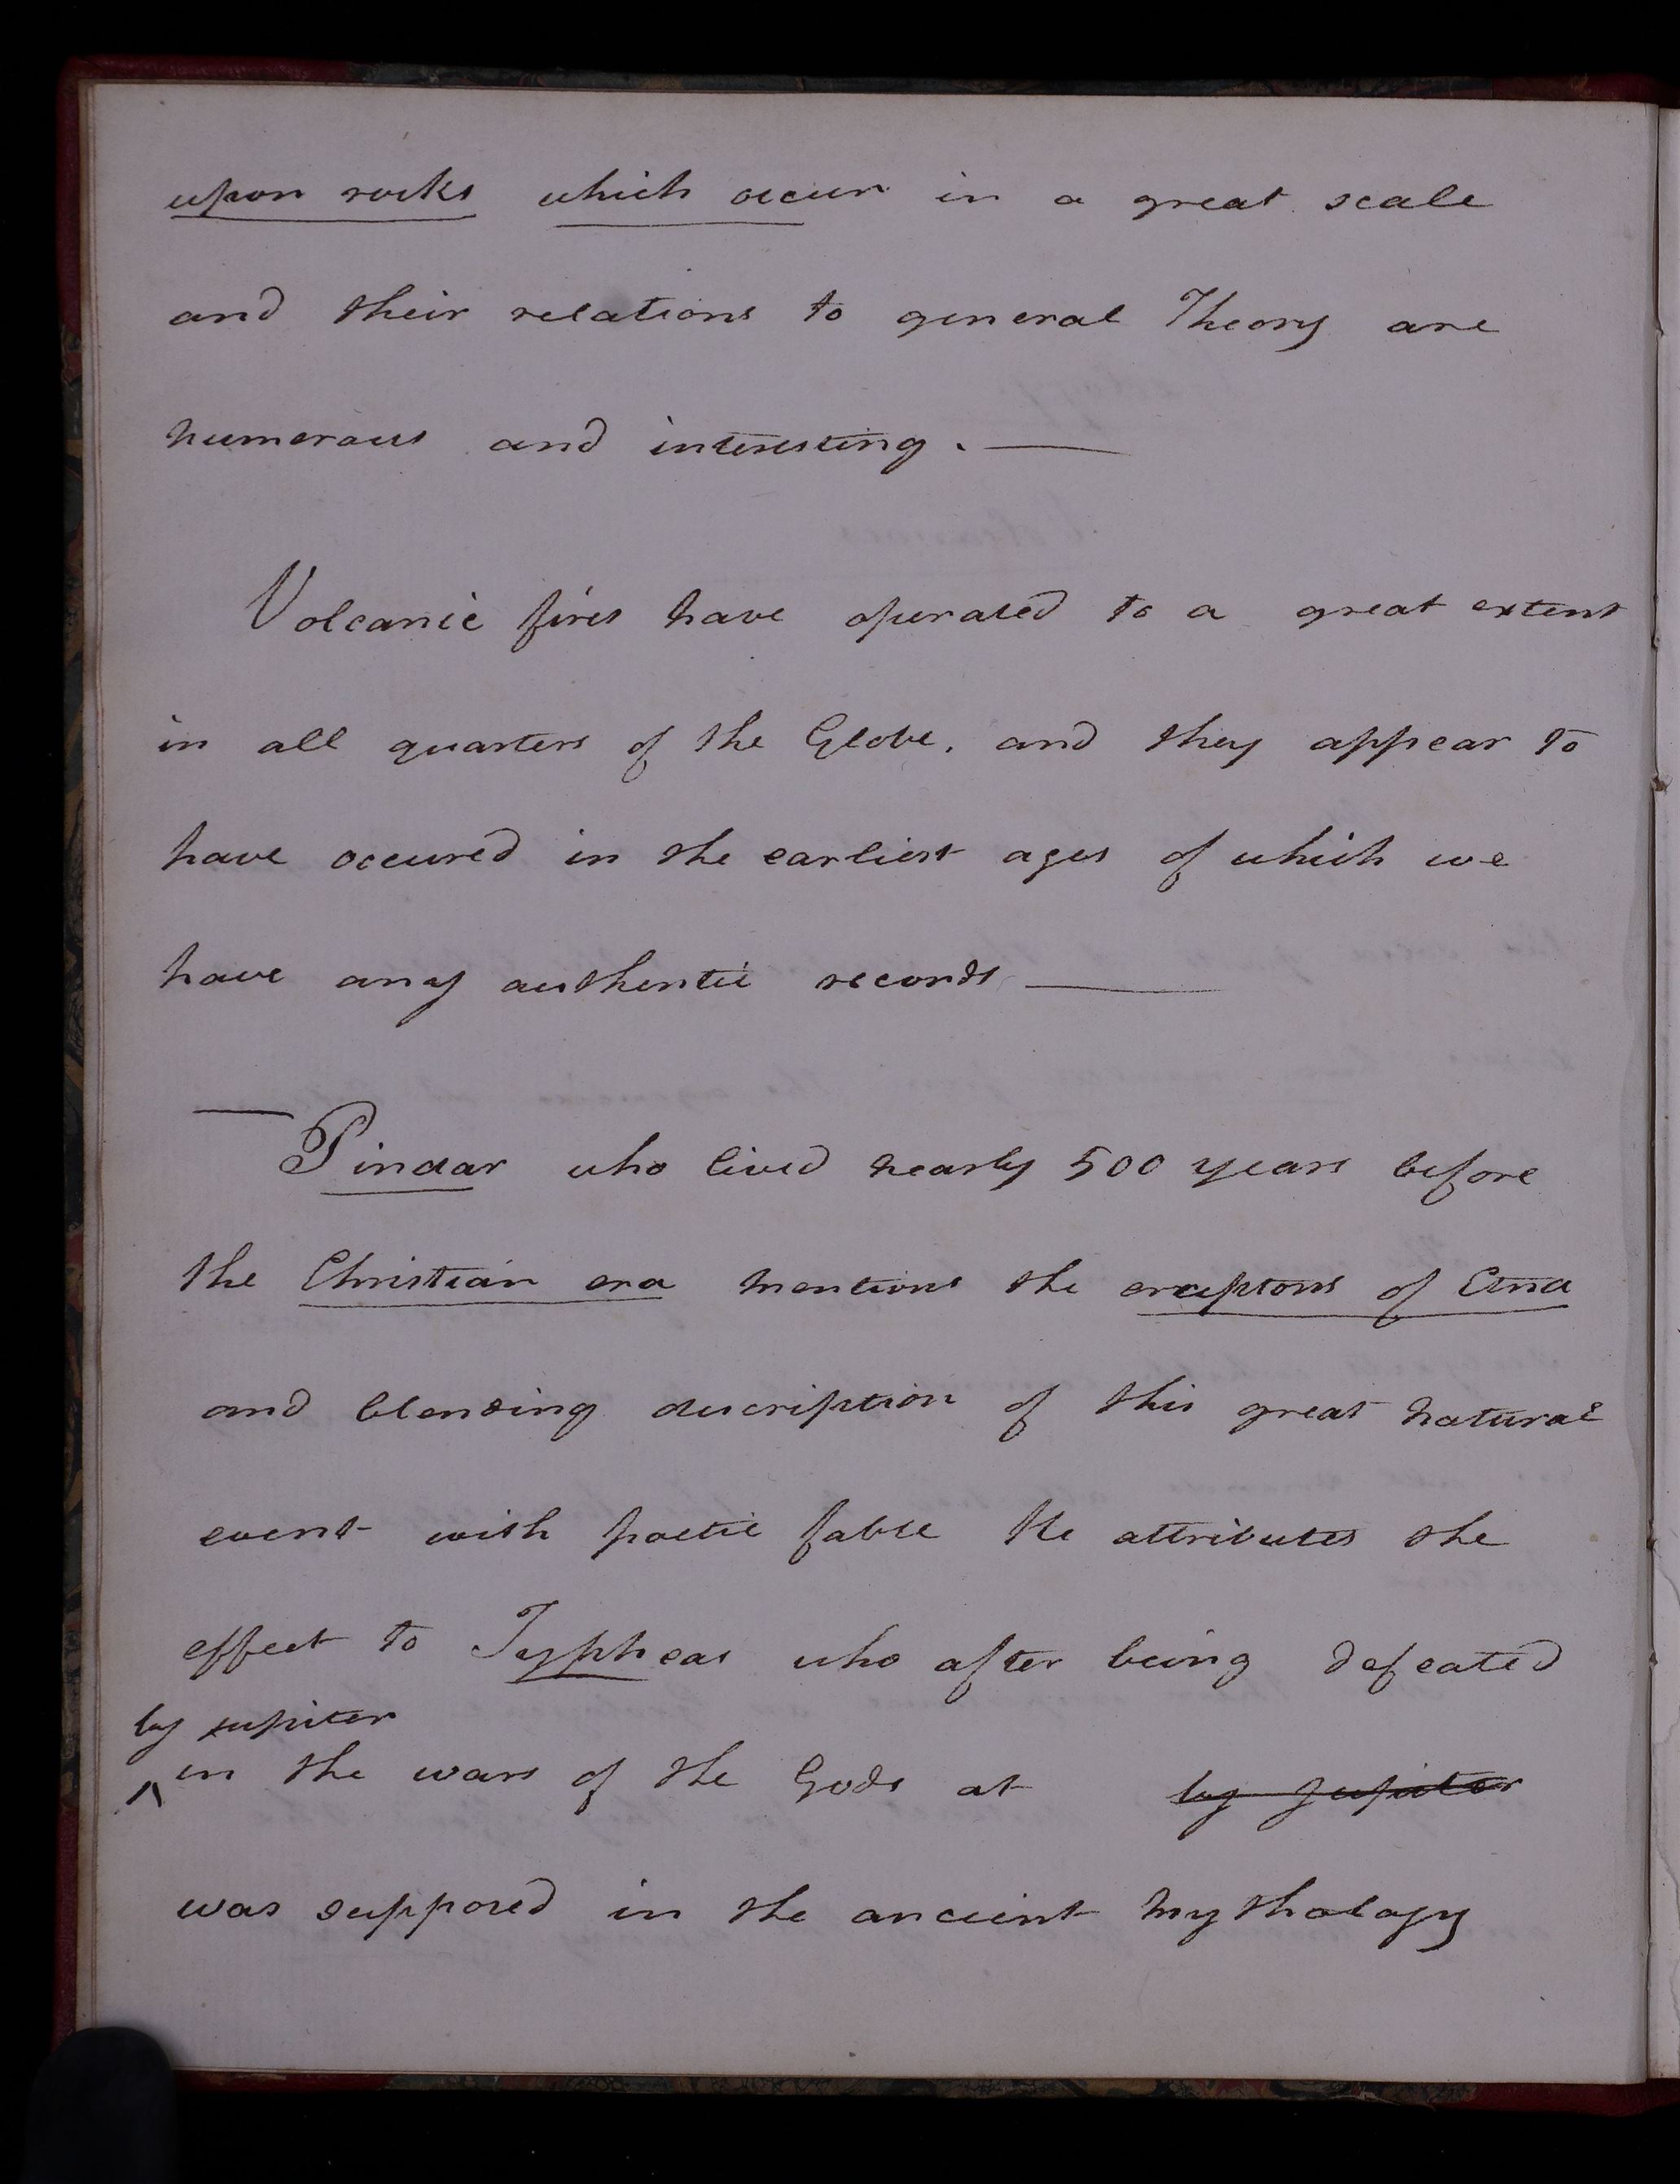 upon rocks which occur in a great scale
and their relations to general Theory are
numerous and interesting. —
Volcanic fires have operated to a great extent
in all quarters of the Globe, and they appear to
have occured in the earliest ages of which we
have any authentic records —
— Pindar who lived nearly 500 years before
the Christian era mentions the eruptons of Etna
and blending description of this great natural
event with poetic fable He attributes the
effect to Typheas who after being defeated
by jupiter
^ in the wars of the Gods at by Jupiter
was supposed in the ancient mythology